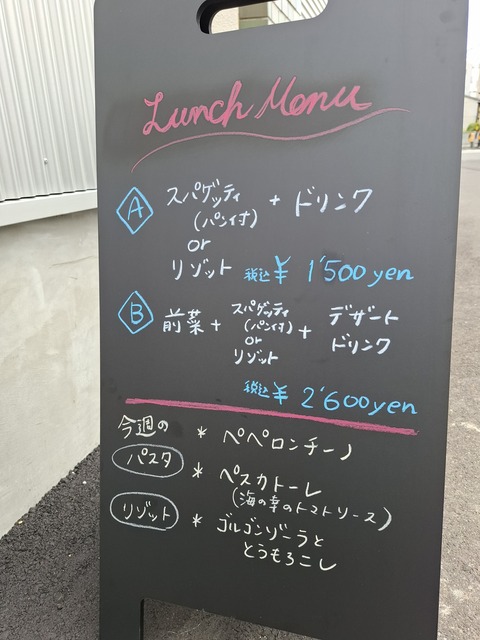 Lunch Menu
A スパゲッティ + ドリンク
(パン付)
or
リゾット 税込 ¥ 1'500 yen
B 前菜 + スパゲッティ (パン付) or リゾット + デザート ドリンク
税込 ¥ 2'600 yen
今週の
パスタ * ペペロンチーノ
* ペスカトーレ
(海の幸のトマトソース)
リゾット * ゴルゴンゾーラと
とうもろこし